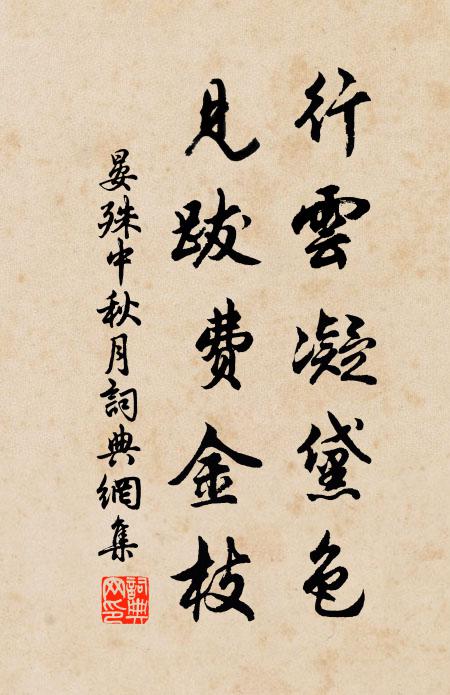 行雲凝黛色
見跋費金枝
晏殊中秋月詞典網集
詞典網印